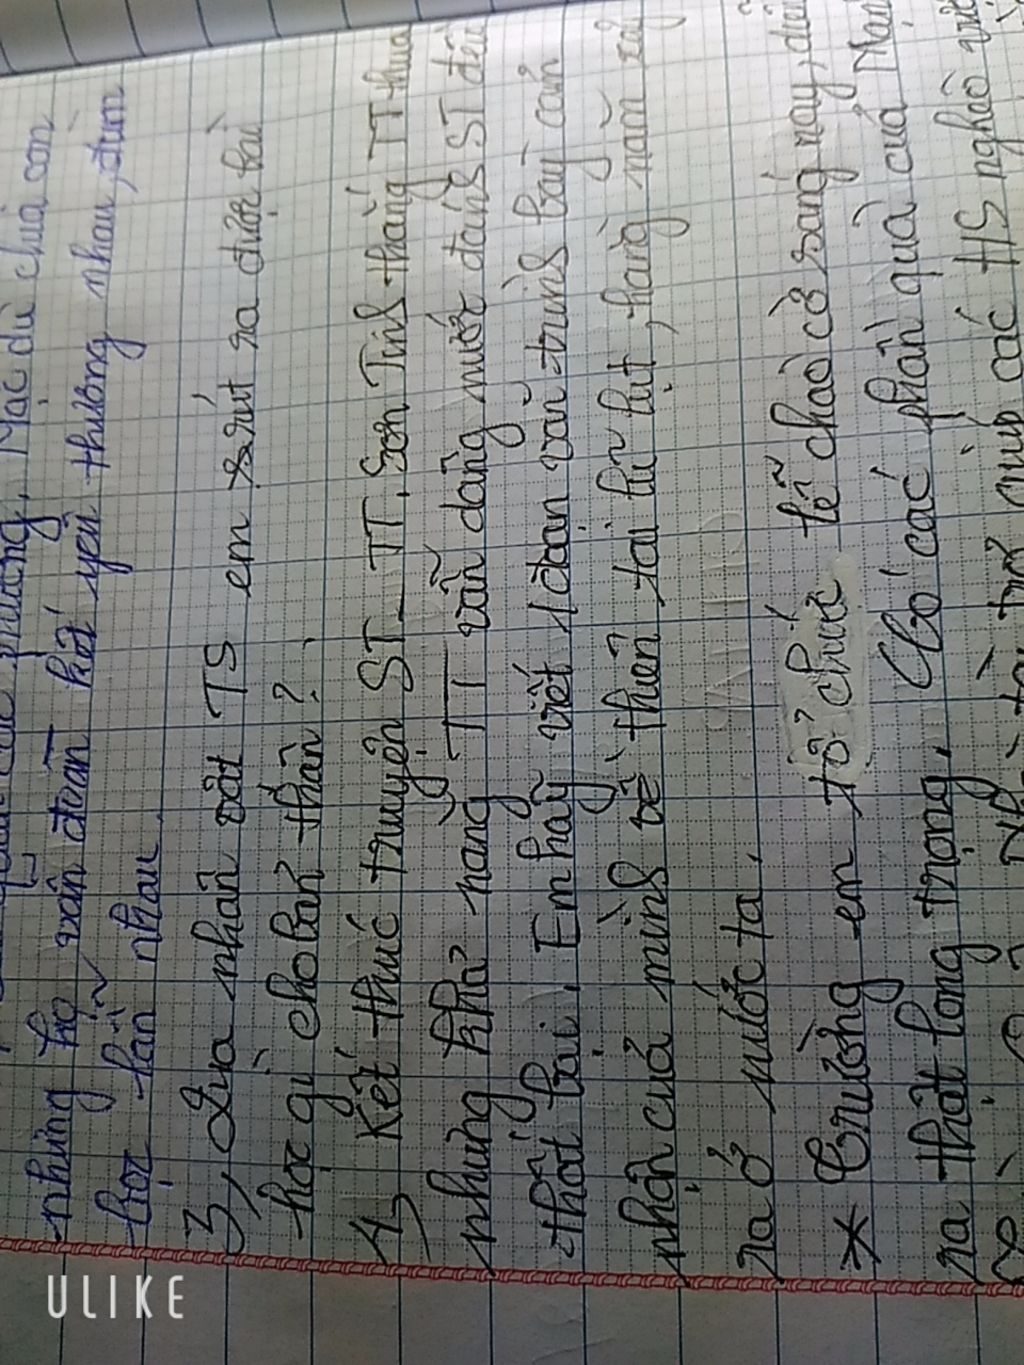 những họ vẫn đoàn kết yêu thương nhau, đùm
bọc lẫn nhau.
3, Qua nhân vật TS em rút ra được bài
học gì cho bản thân?
4, Kết thúc truyện ST - TT. Sơn Tinh thắng TT thua
nhưng hằng TT vẫn dâng nước đánh ST đều
thất bại. Em hãy viết 1 đoạn văn trình bày cảm
nhận của mình về thiên tai lũ lụt, hàng năm xảy
ra ở nước ta.
* Trường em tổ chức lễ chào cờ sáng nay, diễn
ra thật long trọng. Có các phần quà của
các HS nghèo
ULIKE